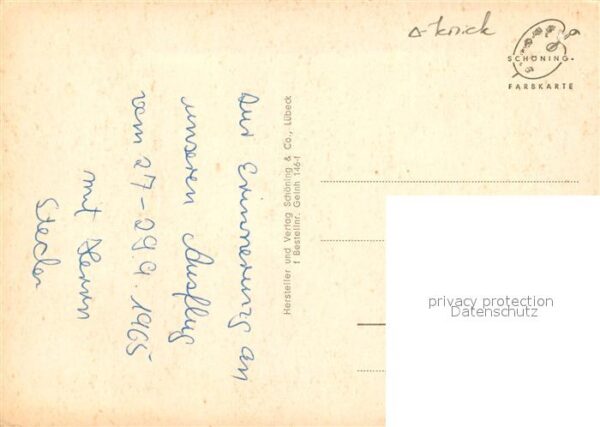 Zur Erinnerung an
unseren Ausflug
vom 27-29.9.1965
mit Herrn
Stecher
Hersteller und Verlag Schöning & Co., Lübeck
f Bestellnr. Gelnh 146-f
SCHÖNING-
FARBKARTE
privacy protection
Datenschutz